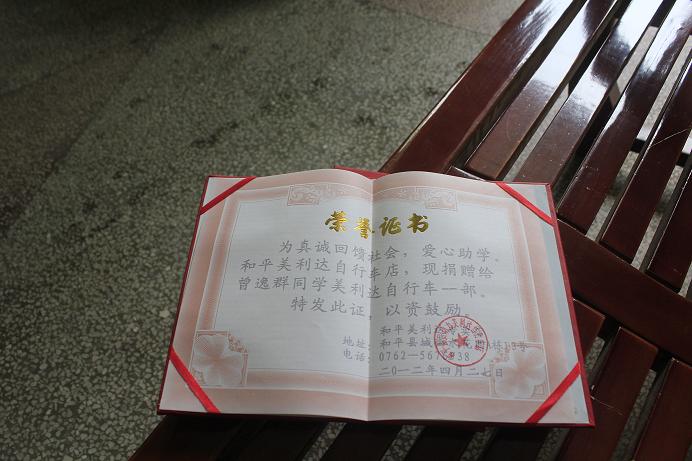 荣誉证书
为真诚回馈社会，爱心助学。
和平美利达自行车店，现捐赠给
曾逸群同学美利达自行车一部。
特发此证，以资鼓励。
和平美利达
地址：和平县城
电话：0762-567
二0一二年四月二七日